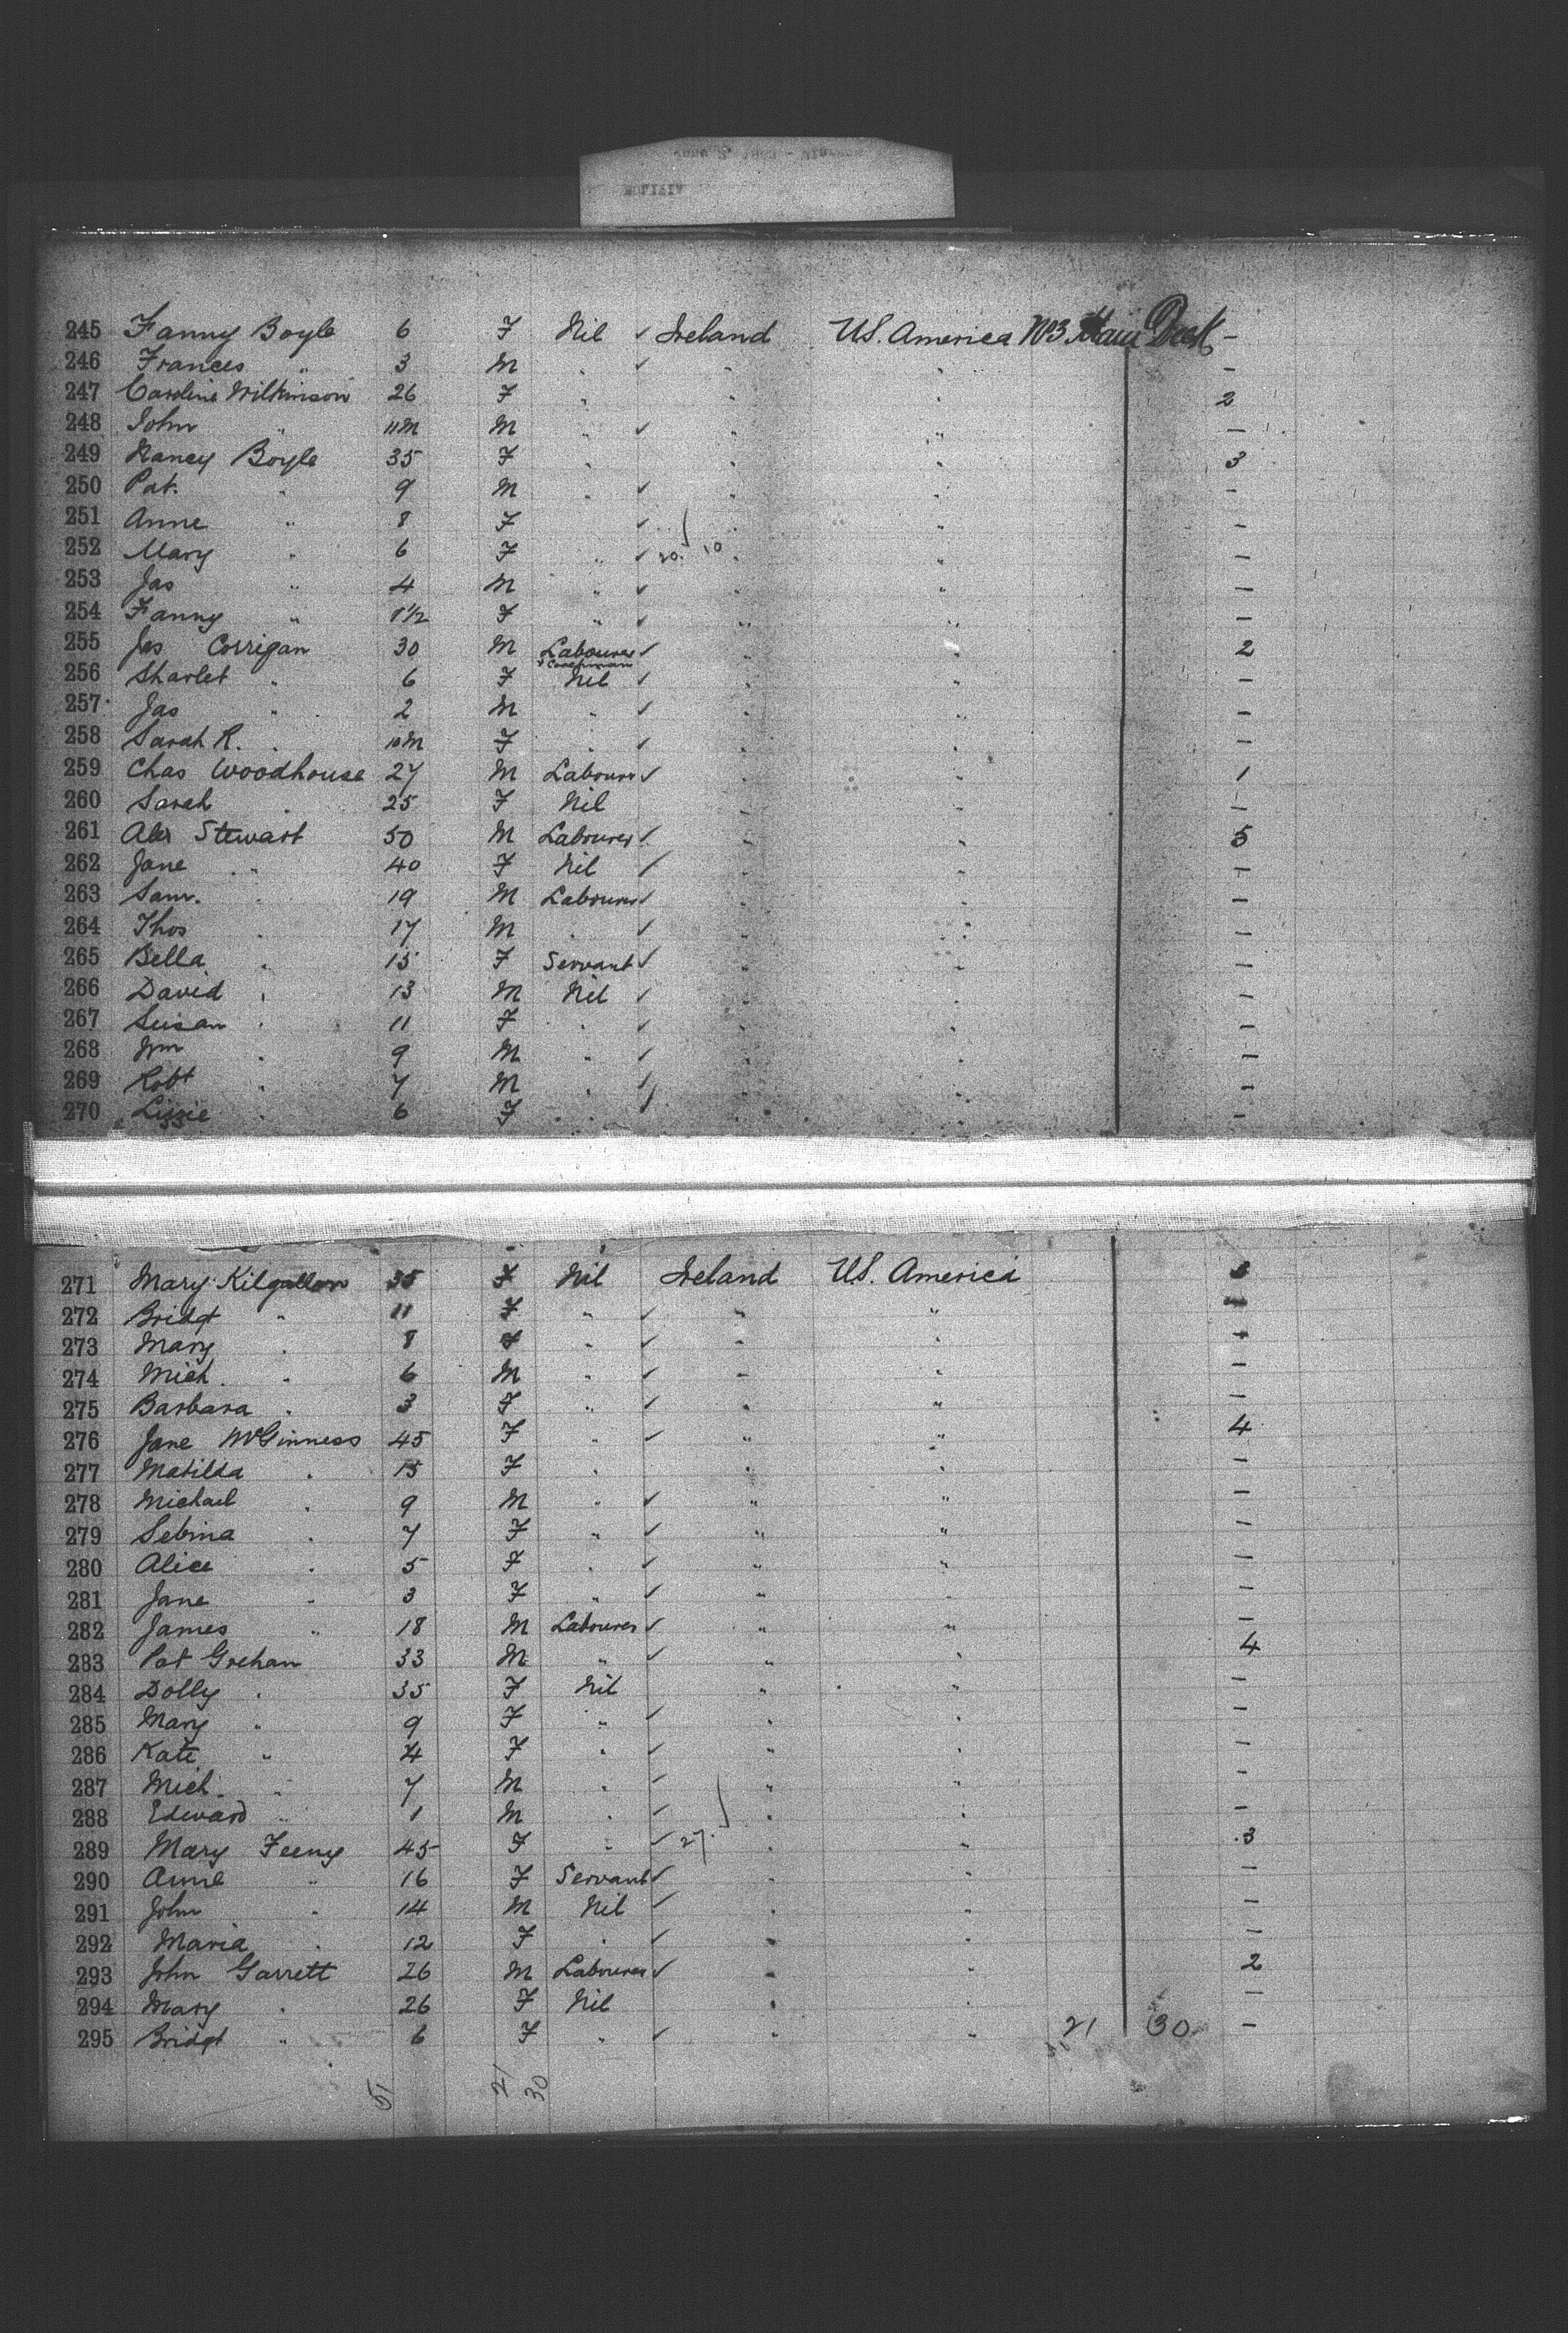 245 Fanny Boyle 6 F Nil ✓ Ireland U.S. America No3 Main Deck -
246 Frances " 3 M " ✓ " " -
247 Caroline Wilkinson 26 F " " " 2
248 John " 11M M " ✓ " " -
249 Nancy Boyle 35 F " " " 3
250 Pat. " 9 M " ✓ " " -
251 Anne " 8 F ✓ " " -
252 Mary " 6 F " ✓ 20. 10 " " -
253 Jas " 4 M " ✓ " " -
254 Fanny " 1½ F " ✓ " " -
255 Jas Corrigan 30 M Labourer ✓ " " 2
& Coachman
256 Sharlet " 6 F Nil ✓ " " -
257 Jas " 2 M " ✓ " " -
258 Sarah R. " 10M F " ✓ " " -
259 Chas Woodhouse 27 M Labourer ✓ " " 1
260 Sarah " 25 F Nil " " -
261 Alex Stewart 50 M Labourer ✓ " " 5
262 Jane " 40 F Nil ✓ " " -
263 Sam. " 19 M Labourer ✓ " " -
264 Thos " 17 M " ✓ " " -
265 Bella " 15 F Servant ✓ " " -
266 David " 13 M Nil ✓ " " -
267 Susan " 11 F " ✓ " " -
268 Wm " 9 M " ✓ " " -
269 Robt " 7 M " ✓ " " -
270 Lizzie " 6 F " ✓ " " -
271 Mary Kilgallon 35 F Nil Ireland U.S. America
272 Bridgt " 11 F " ✓ " " -
273 Mary " 8 F " ✓ " " -
274 Mich. " 6 M " ✓ " " -
275 Barbara " 3 F " ✓ " " -
276 Jane McGinness 45 F " ✓ " " 4
277 Matilda " 15 F " " " -
278 Michael " 9 M " ✓ " " -
279 Sebina " 7 F " ✓ " " -
280 Alice " 5 F " ✓ " " -
281 Jane " 3 F " ✓ " -
282 James " 18 M Labourer ✓ " " -
283 Pat Grehan 33 M " ✓ " " 4
284 Dolly " 35 F Nil " " -
285 Mary " 9 F " ✓ " " -
286 Kate " 4 F " ✓ " " -
287 Mich. " 7 M " ✓ " " -
288 Edward " 1 M " ✓ " " -
289 Mary Feeny 45 F " ✓ 27. " " 3
290 Anne " 16 F Servant ✓ " " -
291 John " 14 M Nil ✓ " " -
292 Maria " 12 F " ✓ " " -
293 John Garrett 26 M Labourer ✓ " " 2
294 Mary " 26 F Nil " " -
295 Bridgt " 6 F " ✓ " " 21 30 -
51 21 30
51